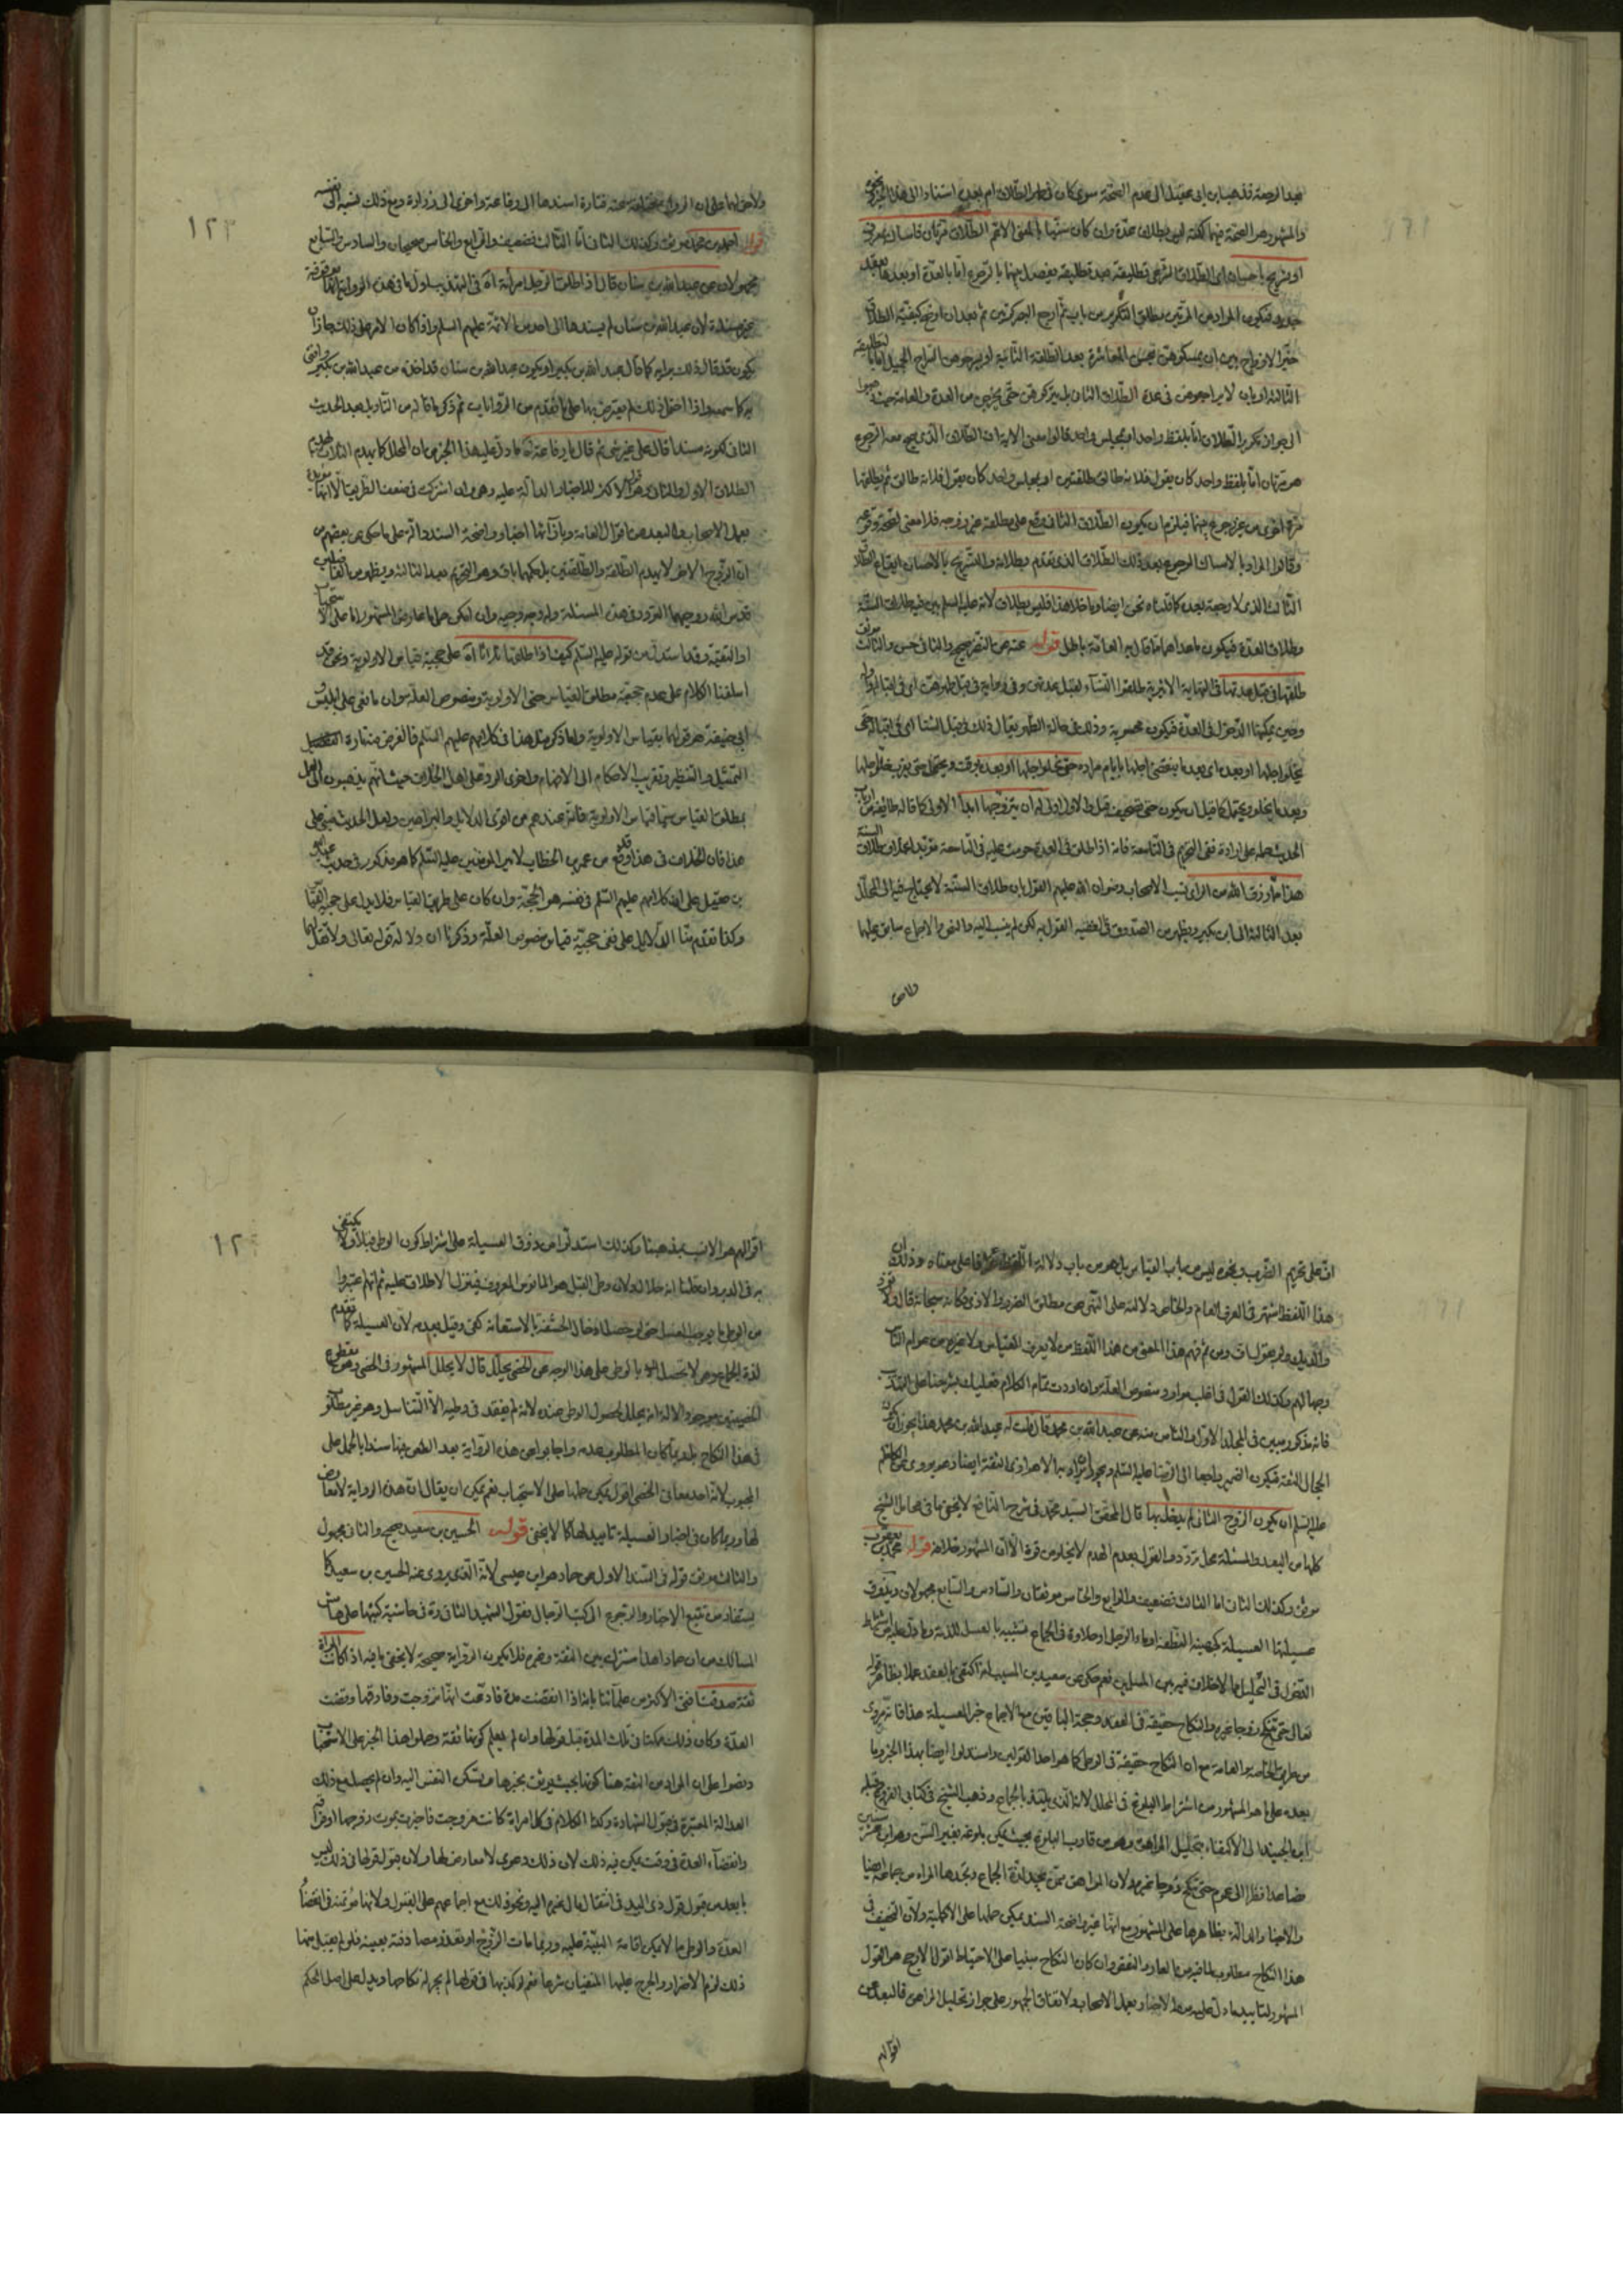 بعد الرجعة فذهب ابن ابي عقيل الى عدم الصحة سوى كان في طهر الطلاق ام بعده استنادا الى هذا الخبر ونحوه
والمشهور هو الصحة فيهما لكنه ليس بطلاق عدة وان كان سنيا بالمعنى الاعم الطلاق مرتان فامساك بمعروف
او تسريح باحسان اي الطلاق الشرعي تطليقة بعد تطليقة يفصل بينهما بالرجوع اما بالعدة او بعدها بعقد
جديد فيكون المراد من المرتين مطلق التكرير من باب ثم ارجع البصر كرتين ثم بعد ان اوضح كيفية الطلاق
خير الازواج بين ان يمسكوهن بحسن المعاشرة بعد الطلقة الثانية او يسرحوهن السراح الجميل اما بالتطليقة
الثالثة او بان لا يراجعوهن في عدة الطلاق الثاني بل يتركوهن حتى يخرجن من العدة والعامة حيث ذهبوا
الى جواز تكرير الطلاق اما بلفظ واحد او مجلس واحد قالوا معنى الاية ان الطلاق الذي يصح معه الرجوع
هو مرتان اما بلفظ واحد كان يقول فلانة طالق طلقتين او بمجلس واحد كان يقول فلانة طالق ثم يطلقها
مرة اخرى من غير رجوع بينهما فيلزم ان يكون الطلاق الثاني وقع على مطلقة غير زوجة فلا معنى لصحته وقوعه
وقالوا المراد بالامساك الرجوع بعد ذلك الطلاق الذي تقدم بطلانه والتسريح بالاحسان ايقاع الطلاق
الثالث الذي لا رجعة بعده كما قلناه نحن ايضا وما خلا هذا فليس بطلاق لانه عليه السلم بين فيه طلاق السنة
وطلاق العدة فيكون ما عداهما مما قال به العامة باطل قوله عنه عن النضر صحيح والثاني حسن والثالث موثق
طلقها في قبل عدتها في النهاية الاثيرية طلقوا النساء لقبل عدتهن وفي رواية في قبل طهرهن اي في اقباله واوله
وحين يمكنها الدخول في العدة فيكون محسوبة وذلك في حالة الطهر يقال ذلك في قبل الشتا اي في اقباله حتى
يخلو اجلها او بعده اي بعد ما ينقضي اجلها بايام مراده حتى يخلو اجلها او بعده بوقت ويحتمل حتى يقرب خلو اجلها
وبعد ما يخلو ويحتمل كما قيل ان يكون حتى تصحيف قبل والاول اولى له ان يتزوجها ابدا الاولى كما قاله طائفة من ارباب
الحديث حمله على ارادة نفي التحريم في التاسعة فانه اذا طلق في العدة حرمت عليه في التاسعة مؤبدا اعلم ان طلاق السنة
هذا ما رزق الله من الراي نسب الاصحاب رضوان الله عليهم القول بان طلاق السنة لا يحتاج فيه الى المحلل
بعد الثالثة الى ابن بكير ويظهر من الصدوق في الفقيه القول به لكن لم ينسب اليه والنص والاجماع سابق عليهما
ولاص
١٢٣
قوله احمد بن محمد موثق وكذلك الثاني اما الثالث فضعيف والرابع والخامس صحيحان والسادس والسابع
مجهولان عن عبد الله بن سنان قال اذا طلق الرجل امراته اه في التهذيب اول ما في هذه الرواية انها موقوفة
غير مسندة لان عبد الله بن سنان لم يسندها الى احد من الائمة عليهم السلم واذا كان الامر على ذلك جاز ان
يكون قد قال ذلك برايه كما قال عبد الله بن بكير او يكون عبد الله بن سنان قد اخذه من عبد الله بن بكير وافتى
به كما سمعه واذا احتمل ذلك لم يعترض بها على ما تقدم من الروايات ثم ذكر ما قاله من التاويل بعد الحديث
بعمل الاصحاب والبعد من اقوال العامة وبازائها اخبار واضحة السند دالة على ما حكي عن بعضهم من
ان الزوج الاخر لا يهدم الطلقة والطلقتين بل حكمهما باق وهو التحريم بعد الثالثة ويظهر من الفاضلين
قدس الله روحيهما التردد في هذه المسئلة وله وجه وجيه وان امكن حمل ما عارض المشهور اما على الاستحباب
او التقية وقد استدل من قوله عليه السلم كيف اذا طلقها ثلاثا اه على حجية قياس الاولوية ونحن قد
اسلفنا الكلام على عدم حجية مطلق القياس حتى الاولوية ومنصوص العلة وان ما نفي على ابليس و
ابي حنيفة هو قولهما بقياس الاولوية واما ذكر مثل هذا في كلامهم عليهم السلم فالغرض منه تارة
التمثيل والتنظير وتقريب الاحكام الى الافهام واخرى الرد على اهل الخلاف حيث انهم يذهبون الى العمل
بمطلق القياس سيما قياس الاولوية فانه عندهم من اقوى الدلائل والبراهين ولعل الحديث مبني على
هذا فان الخلاف في هذا قد وقع من عمر بن الخطاب لامير المؤمنين عليه السلم كما هو مذكور في حديث عبد الله
بن عقيل على ان كلامهم عليهم السلم في نفسه هو الحجة وان كان على طريق القياس فلا يدل على حجية القياس
وكذا تقدم منا الدلايل على نفي حجية قياس منصوص العلة وذكرنا ان دلالة قوله تعالى ولا تقل لهما
اف على تحريم الضرب ونحوه ليس من باب القياس بل هو من باب دلالة اللفظ عرفا على معناه وذلك ان
هذا اللفظ اشتهر في العرف العام والخاص دلالته على النهي عن مطلق الضرر والاذى فكانه سبحانه قال ولا تؤذ
والديك ولو بقول اف ومن ثم فهم هذا المعنى من هذا اللفظ من لا يعرف القياس ولا غيره من عوام الناس
وجهالهم وكذلك القول في اغلب موارد منصوص العلة وان اردت تمام الكلام فعليك بشرحنا على التهذيب
فانه مذكور مبين في المجلد الاول والثامن منه عن عبد الله بن محمد قال قلت له عبد الله بن محمد هذا يجوز ان يكون
عليه السلم ان يكون الزوج الثاني لم يدخل بها قال المحقق السيد محمد في شرح النافع لا يخفى ما في محامل الشيخ
كلها من البعد والمسئلة محل تردد والقول بعدم الهدم لا يخلو من قوة الا ان المشهور خلافه قوله محمد بن يعقوب
موثق وكذلك الثاني اما الثالث فضعيف والرابع والخامس موثقان والسادس والسابع مجهولان ويذوق
عسيلتها العسيلة كجهينة النطفة او ماء الرجل او حلاوة الجماع تشبيه بالعسل للذته وما دل عليه من اشتراط
الدخول في التحليل مما لا خلاف فيه بين المسلمين نعم حكي عن سعيد بن المسيب انه اكتفى بالعقد عملا بظاهر قوله
تعالى حتى تنكح زوجا غيره والنكاح حقيقة في العقد وحجة الباقين مع الاجماع خبر العسيلة هذا فانه مروي
من طريق الخاصة والعامة مع ان النكاح حقيقة في الوطي كما هو احد القولين واستدلوا ايضا بهذا الخبر وما
بعده على ما هو المشهور من اشتراط البلوغ في المحلل لانه الذي يلتذ بالجماع وذهب الشيخ في كتابي الفروع وقبله
ابن الجنيد الى الاكتفاء بتحليل المراهق وهو من قارب البلوغ بحيث يمكن بلوغه بغير السن وهو ابن عشر سنين
فصاعدا نظرا الى عموم حتى تنكح زوجا غيره ولان المراهق ممن يجد لذة الجماع وتجدها المراة من جماعه ايضا
والاخبار الدالة بظاهرها على المشهور مع انها غير واضحة السند يمكن حملها على الاكملية ولان التخفيف في
هذا النكاح مطلوب لما فيه من العار والنقص وان كان النكاح مبنيا على الاحتياط اقول الارجح هو القول
المشهور لتاييد ما دل عليه من الاخبار بعمل الاصحاب ولاتفاق الجمهور على جواز تحليل المراهق فالبعد عن
اقوالهم
اقوالهم هو الانسب بمذهبنا وكذلك استدلوا من ذوق العسيلة على اشتراط كون الوطي قبلا ولا يكتفى
به في الدبر وان قلنا انه حلال ولان وطي القبل هو المانوس المعروف فينزل الاطلاق عليه ثم انهم اعتبروا
من الوطي ما يوجب الغسل حتى لو حصل ادخال الحشفة بالاستعانة كفى وقيل بعدمه لان العسيلة كما تقدم
لذة الجماع وهي لا تحصل بالوطي على هذا الوجه عن الخصي يحلل قال لا يحلل المشهور في الخصي وهو مقطوع
الخصيتين موجود الالة انه يحلل لحصول الوطي منه لانه لم يفقد في وطيه الا التناسل وهو غير مطلوب
في هذا النكاح بل ربما كان المطلوب عدمه واجابوا عن هذه الرواية بعد الطعن فيها سندا بالحمل على
المجبوب لانه احد معاني الخصي اقول يمكن حملها على الاستحباب نعم يمكن ان يقال ان هذه الرواية لا معارض
لها وربما كان في اخبار العسيلة تاييد لها كما لا يخفى قوله الحسين بن سعيد صحيح والثاني مجهول
والثالث موثق قوله في السند الاول عن حماد هو ابن عيسى لانه الذي يروي عنه الحسين بن سعيد كما
يستفاد من تتبع الاخبار والرجوع الى كتب الرجال فقول الشهيد الثاني ره في حاشية كتبها على هامش
المسالك من ان حمادا هذا مشترك بين الثقة وغيره فلا تكون الرواية صحيحة لا يخفى ما فيه اذا كانت المراة
ثقة صدقت افتى الاكثر من علمائنا بانه اذا انقضت مدة فادعت انها تزوجت وفارقها وقضت
العدة وكان ذلك ممكنا في تلك المدة قبل قولها وان لم يعلم كونها ثقة وحملوا هذا الخبر على الاستحباب
ونصوا على ان المراد من الثقة هنا كونها بحيث يوثق بخبرها وتسكن النفس اليه وان لم يحصل مع ذلك
العدالة المعتبرة في قبول الشهادة وكذا الكلام في كل امراة كانت مزوجت فاخبرت بموت زوجها او فراقه
وانقضاء العدة في وقت يمكن فيه ذلك لان ذلك دعوى لا معارض لها ولان قبول قولها في ذلك ليس
بابعد من قبول قول ذي اليد في انتقال مال غيره اليه ونحو ذلك مع اجماعهم على القبول ولانها مؤتمنة في انقضاء
العدة والوطي مما لا يمكن اقامة البينة عليه وربما مات الزوج او تعذر مصادفته بعينه فلو لم يقبل منها
ذلك لزم الاضرار والحرج عليها المنفيان شرعا نعم لو كذبها في قولها لم يجز له نكاحها ويدل على اصل الحكم